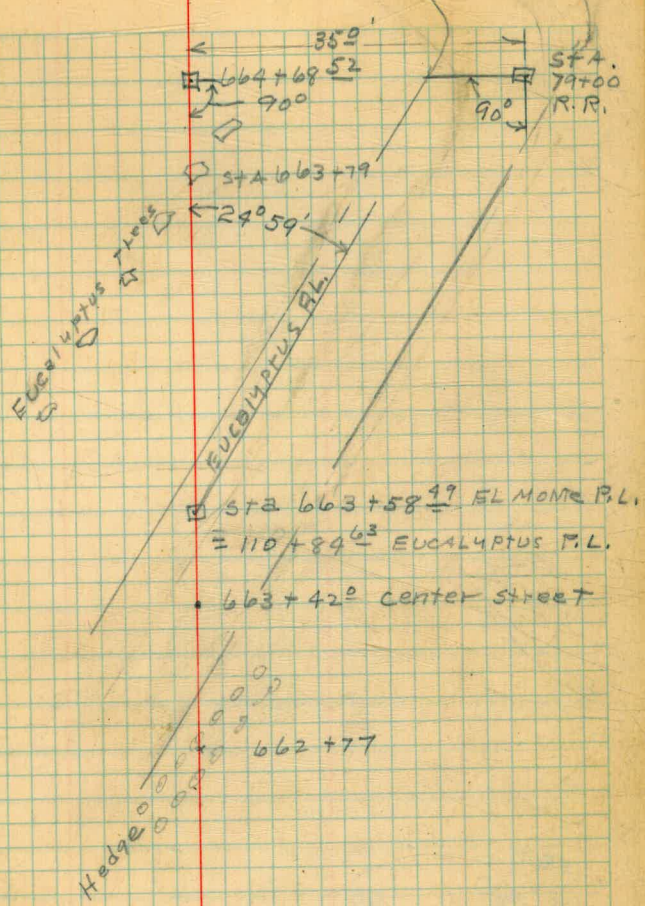 35º'
664+68 52
90º
STA.
79+00
R.R.
90º
StA 663+79
24º59'
Eucalyptus Trees
EUCALYPTUS P.L.
Sta 663+58 49 EL MONTE P.L.
= 110+84 63 EUCALYPTUS P.L.
663+42º center street
662+77
Hedge